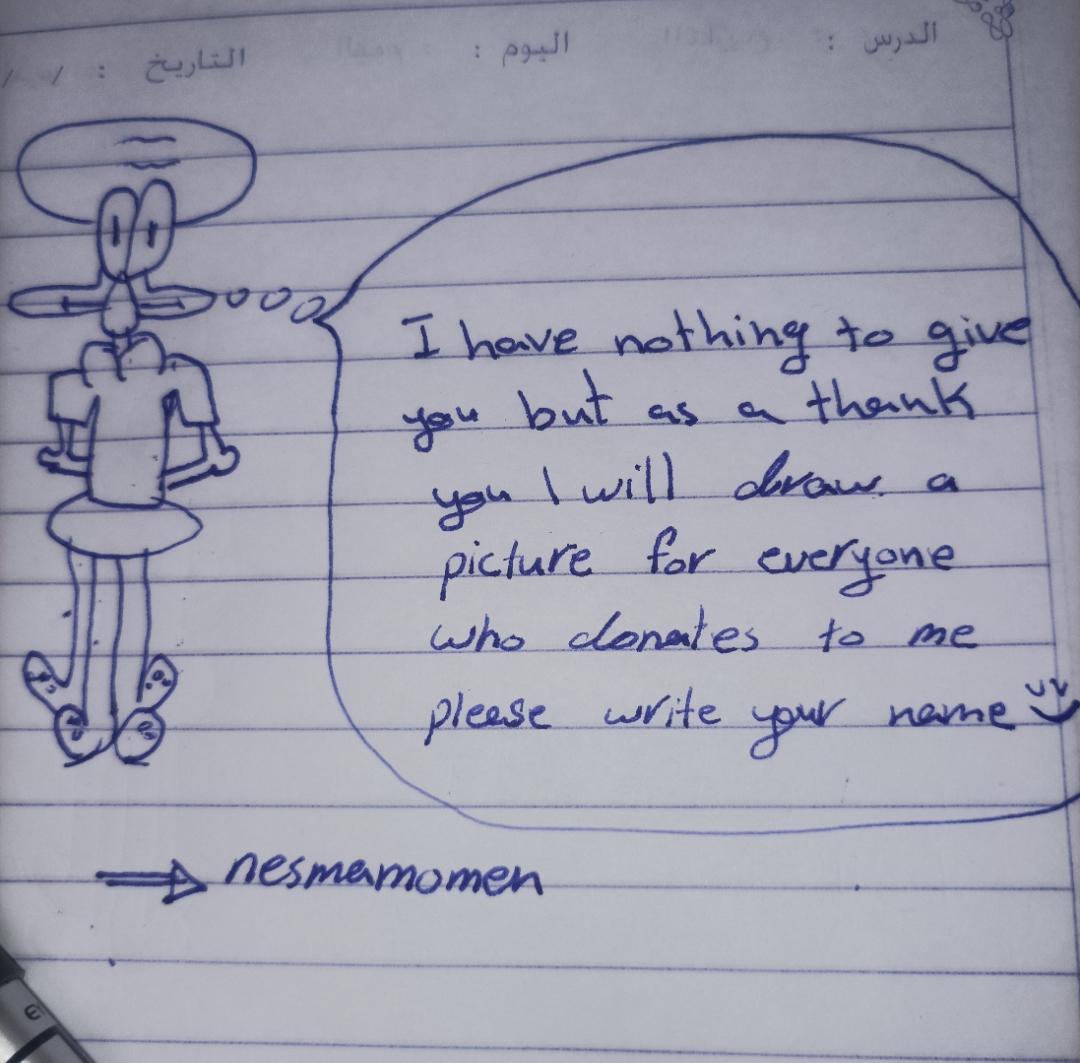 الدرس : اليوم : التاريخ : / /
I have nothing to give
you but as a thank
you I will draw a
picture for everyone
who donates to me
please write your name
nesmamomen